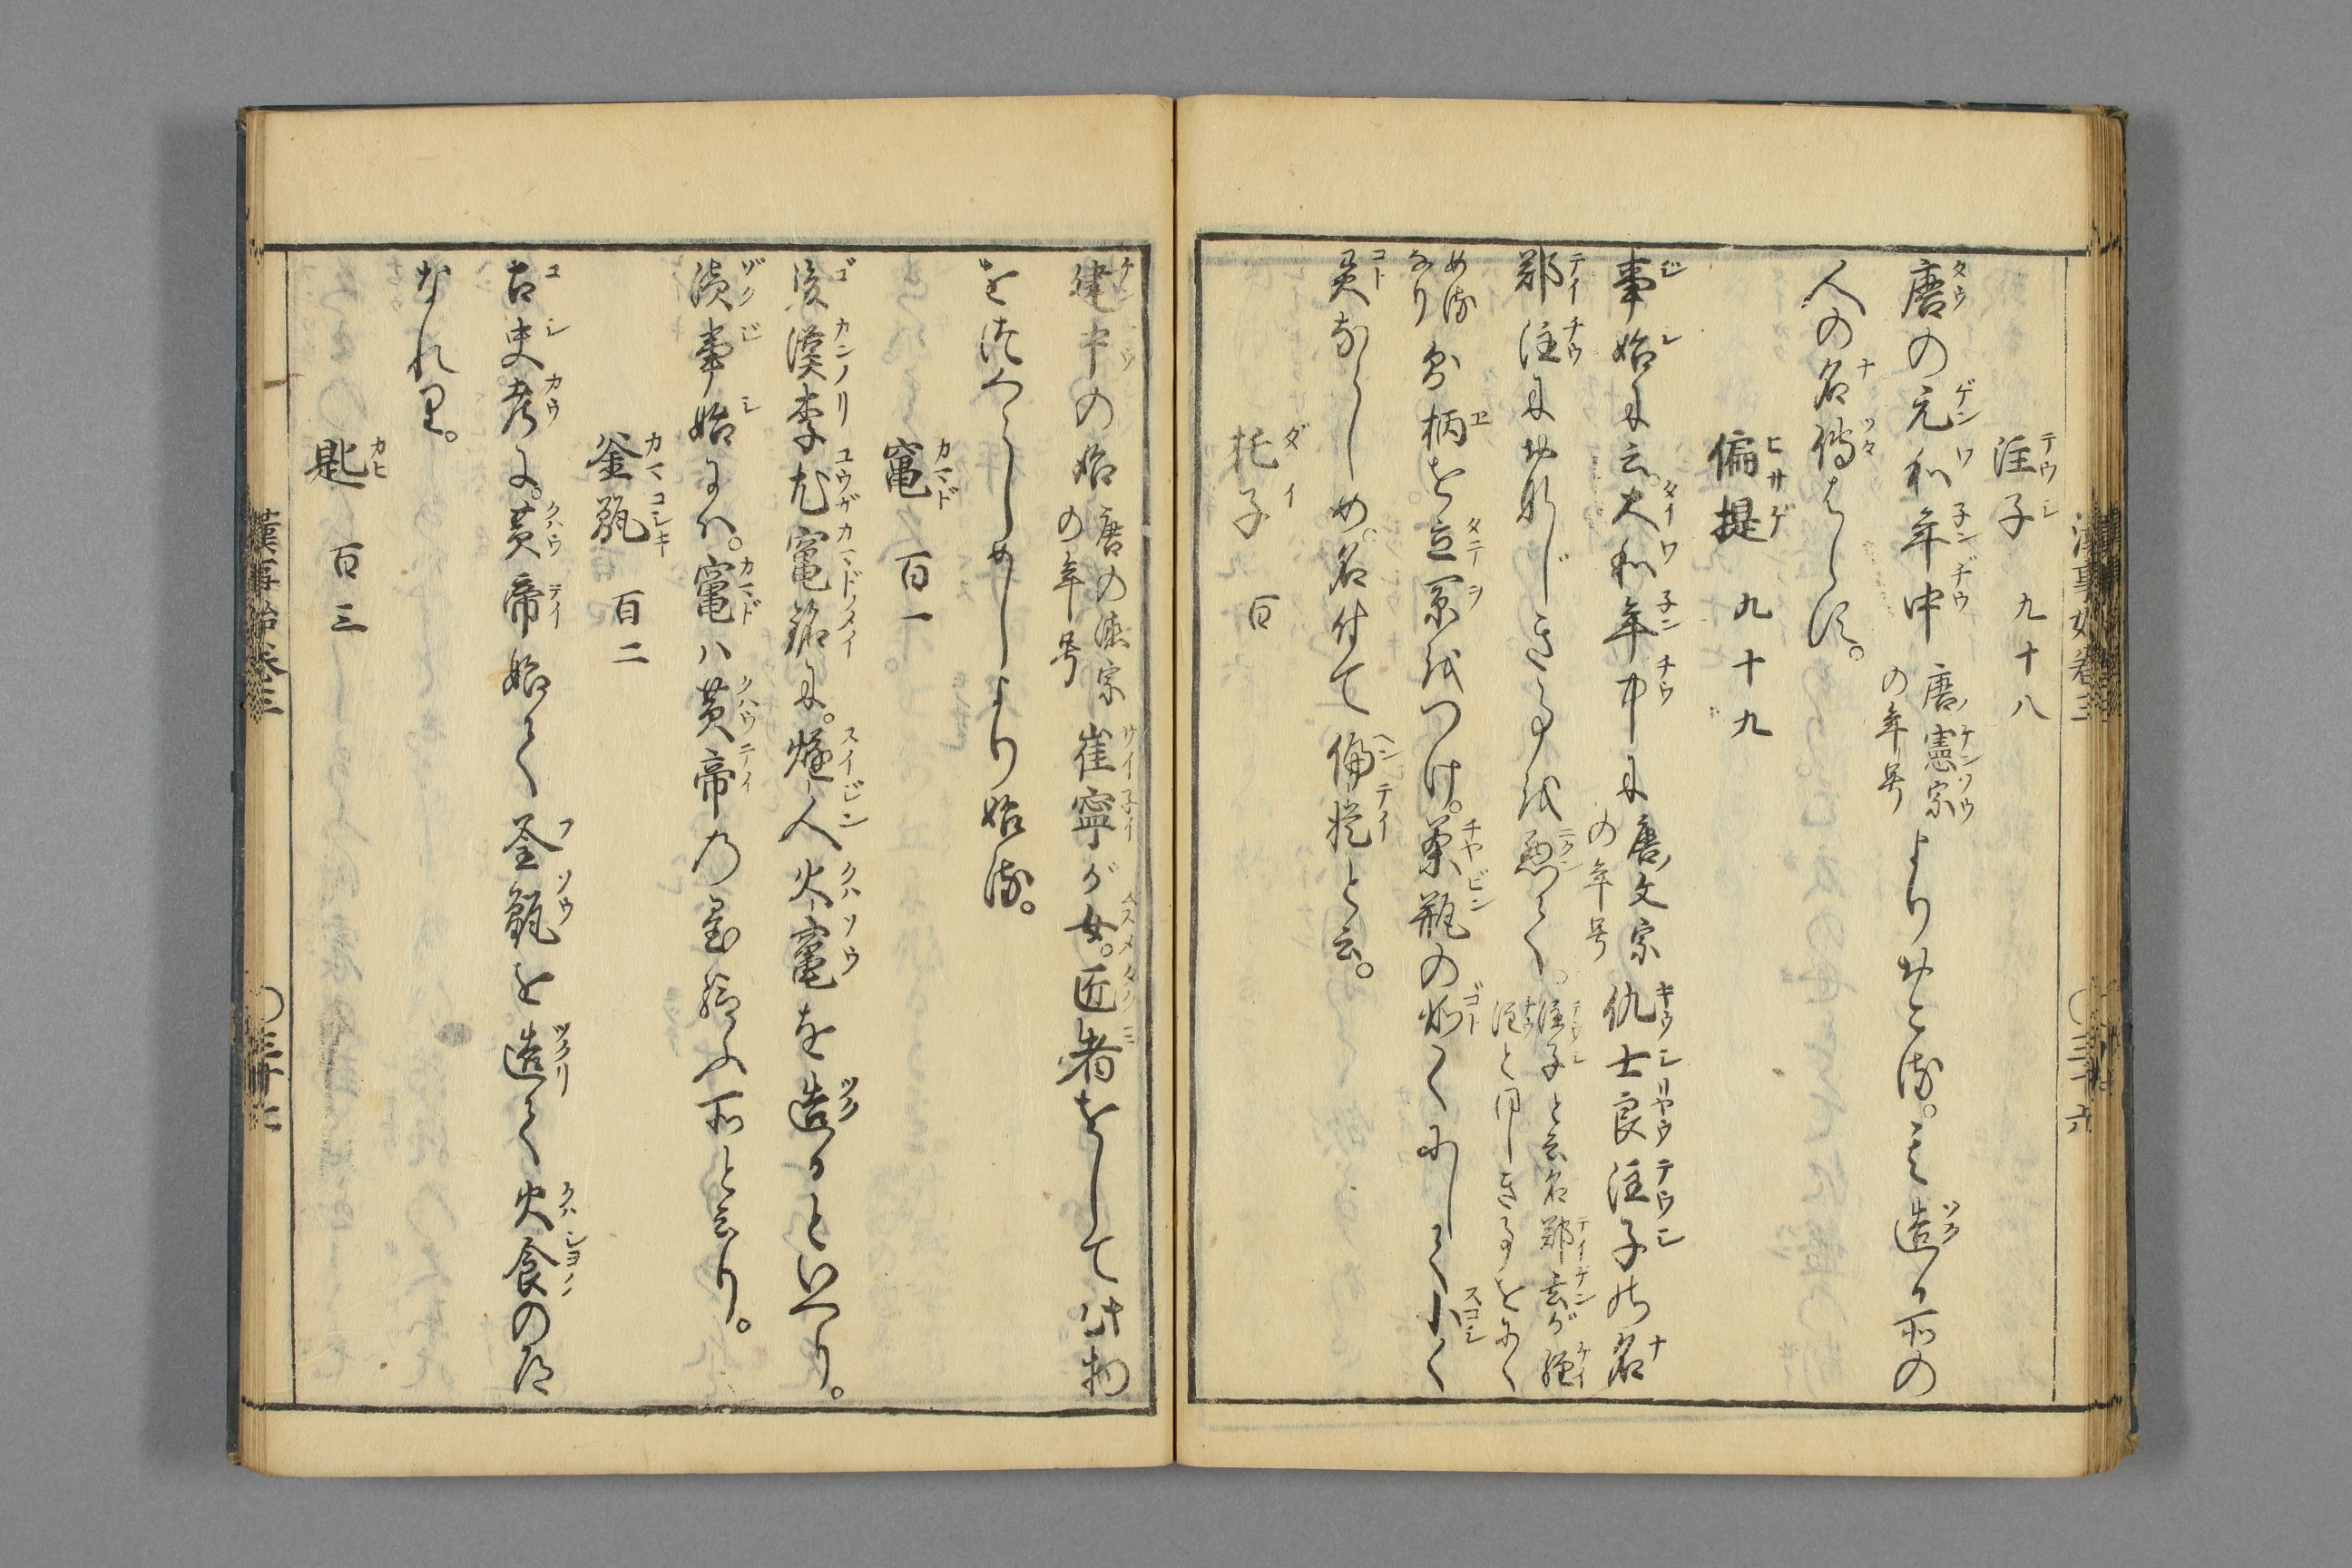 注子 九十八
唐の元和年中唐ノ憲宗の年号よりおこる。其造る所の
人の名傳はらず。
偏提 九十九
事始に云。大和年中に唐ノ文宗の年号仇士良注子の名
鄭注におなじきことを惡て。注子と云名鄭玄が經注と同しきことをにくめるなり
別柄を立系をつけ。茶瓶の如くにして小く
異ならしめ。名付て偏提と云。
托子 百
漢事始卷三 ○三十六
建中の始唐の德宗の年号崔寧が女。匠者をして此物
をつくらしめしより始る。
竈 百一
後漢李尤竈銘に。燧人火竈を造るといへり。
續事始には。竈ハ黄帝の置給ふ所と云り。
釜甑 百二
古史考に。黄帝始て釜甑を造て火食の道
なれり。
匙 百三
漢事始卷三